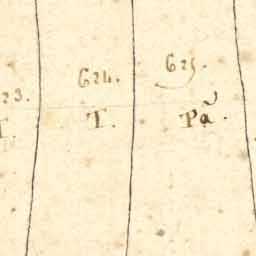 624. 625.
23.
T. T. Pa.